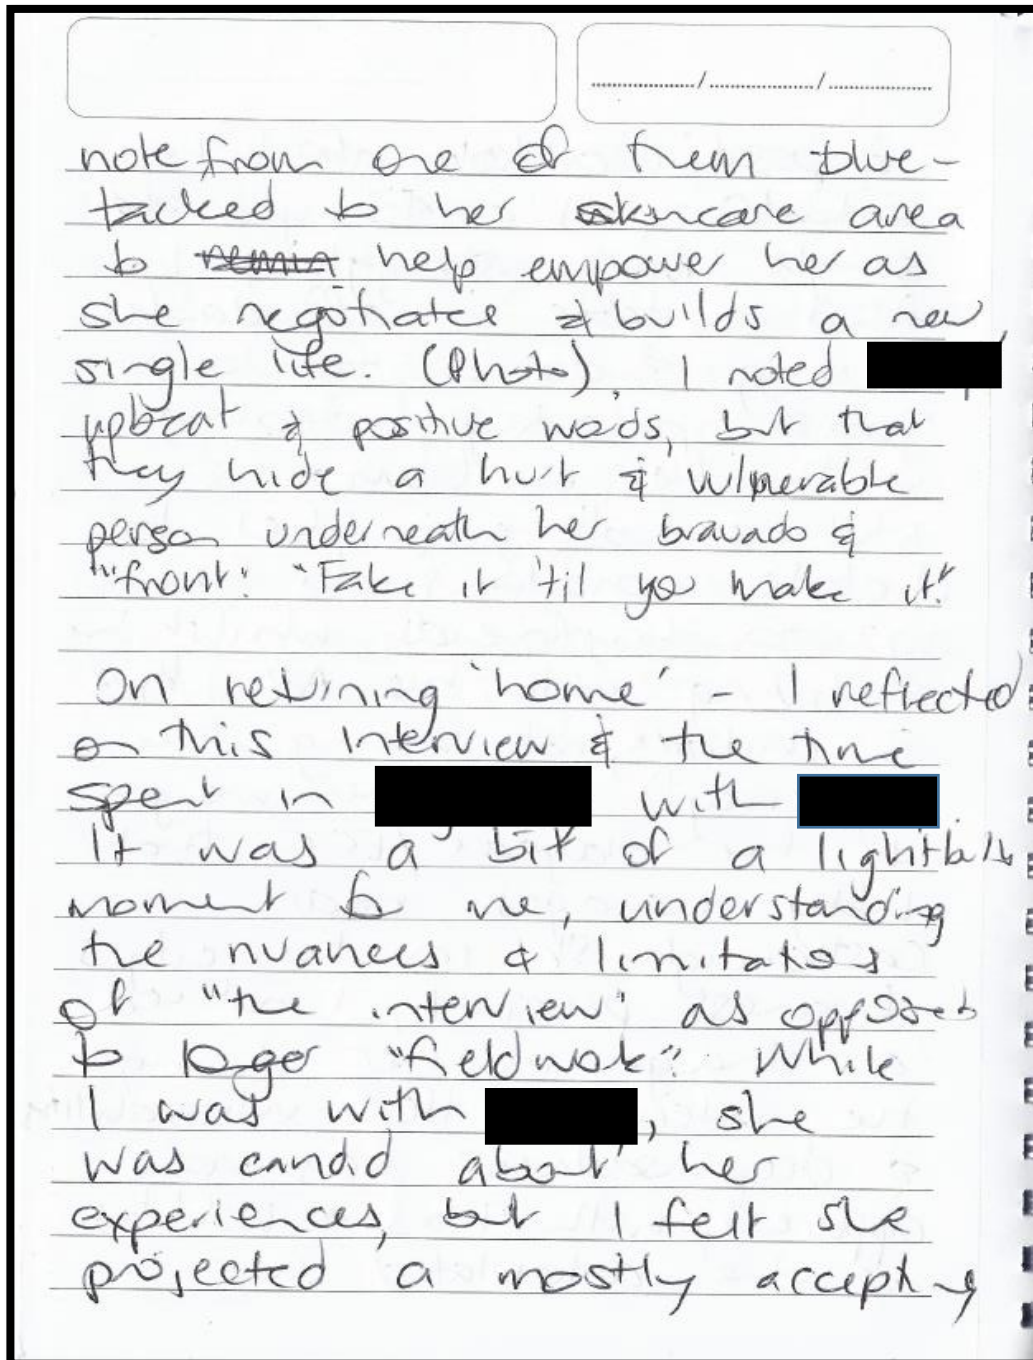 note from one of them blue-
tacked to her skincare area
to remin help empower her as
she negotiates & builds a new,
single life. (Photo). I noted
upbeat & positive words, but that
they hide a hurt & vulnerable
person underneath her bravado &
"front". "Fake it 'til you make it."
On retuning 'home' - I reflected
on this interview & the time
spent in with
It was a bit of a lightbulb
moment for me, understanding
the nuances & limitations
of "the interview" as opposed
to longer "fieldwork". While
I was with , she
was candid about her
experiences, but I felt she
projected a mostly accepting